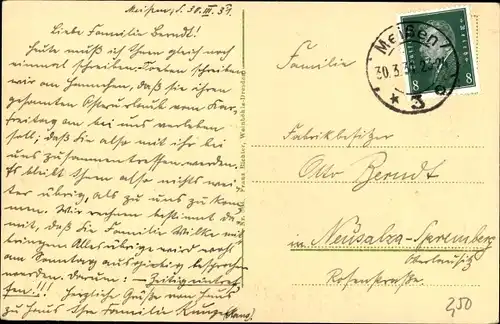 Meißen, d. 30. III. 31.
Liebe Familie Berndt!
Heute muß ich Ihnen gleich noch
einmal schreiben. schreiben
wir an Hannchen, daß sie ihren
gesamten Osterurlaub vom Kar-
freitag an bei uns verleben
soll; daß Sie also mit ihr bei
uns zusammentreffen werden.
Es bleibt Ihnen also nichts wei-
ter übrig, als zu uns zu kom-
men. Wir rechnen bestimmt da-
mit, daß Sie Familie Wilke mit-
bringen. Alles übrige wird wohl
am Sonntag ausgiebig besprochen
werden. darum: Zeitig eintref-
fen!!! Herzliche Grüße von Haus
zu Haus Ihre Familie Runge
Franz Richter, Weinböhla-Dresden
Meißen
30.3.31. 20-21
* 3 c
8 8
Familie
Fabrikbesitzer
Otto Berndt
in Neusalza-Spremberg
Oberlausitz
Rosenstraße.
2,50